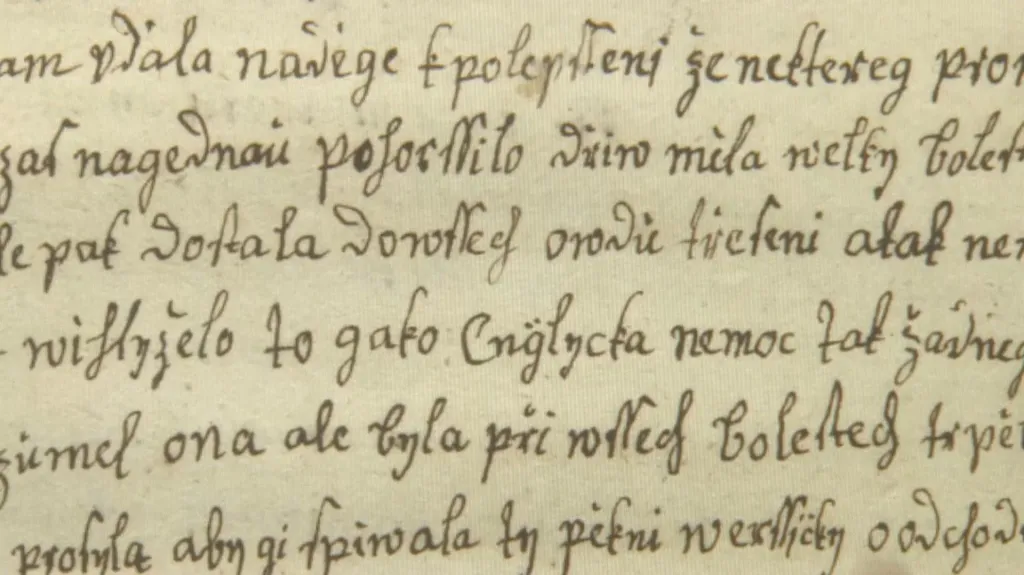 am vdala nadege k polepsseni že nektereg pron
zas nagednau pohorssilo dřiw mela welky boles
le pak dostala do wssech owdu třeseni a tak ne
wihlyželo to gako Englycka nemoc tak žadneg
zumel ona ale byla při wssech bolestech trpě
prosyla aby gi spiwala ty pěkni werssičky o odchod